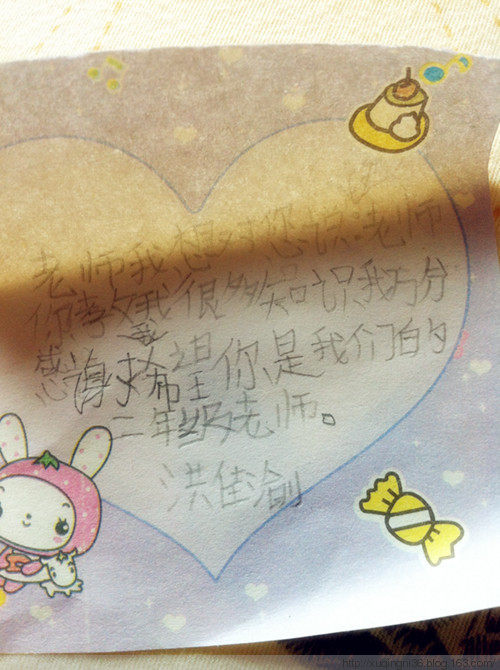 老师我想对您说:老师
你教我很多知识我万分
感谢我希望你是我们的
二年级老师。
洪佳渝